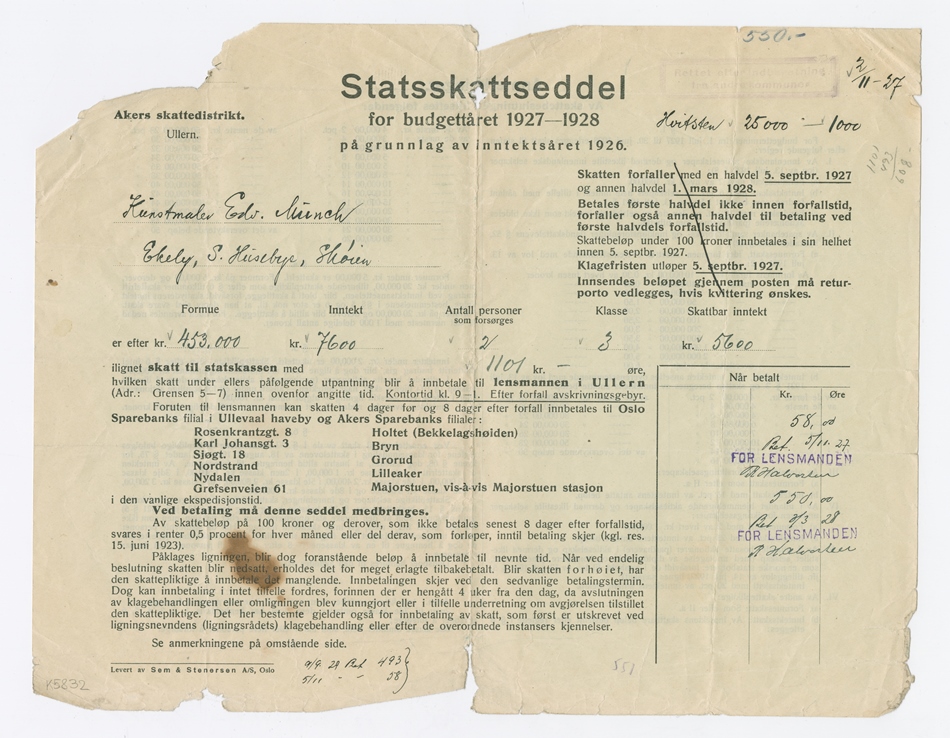 550.-
2/11-27
Statsskattseddel
Akers skattedistrikt.
for budgettåret 1927—1928
Hvitsten 25000 — 1000
Ullern.
på grunnlag av inntektsåret 1926.
Skatten forfaller med en halvdel 5. septbr. 1927
og annen halvdel 1. mars 1928.
Betales første halvdel ikke innen forfallstid,
forfaller også annen halvdel til betaling ved
første halvdels forfallstid.
Skattebeløp under 100 kroner innbetales i sin helhet
innen 5. septbr. 1927.
Klagefristen utløper 5. septbr. 1927.
Innsendes beløpet gjennem posten må retur-
porto vedlegges, hvis kvittering ønskes.
Kunstmaler Edv. Munch
Ekely, S. Huseby, Skøien
Formue Inntekt Antall personer Klasse Skattbar inntekt
som forsørges
er efter kr. 453.000 kr. 7600 2 3 kr. 5600
ilignet skatt til statskassen med 1101 kr. — øre,
hvilken skatt under ellers påfølgende utpantning blir å innbetale til lensmannen i Ullern
(Adr.: Grensen 5—7) innen ovenfor angitte tid. Kontortid kl. 9—1. Efter forfall avskrivningsgebyr.
Foruten til lensmannen kan skatten 4 dager før og 8 dager efter forfall innbetales til Oslo
Sparebanks filial i Ullevaal haveby og Akers Sparebanks filialer:
Rosenkrantzgt. 8 Holtet (Bekkelagshøiden)
Karl Johansgt. 3 Bryn
Sjøgt. 18 Grorud
Nordstrand Lilleaker
Nydalen Majorstuen, vis-à-vis Majorstuen stasjon
Grefsenveien 61
i den vanlige ekspedisjonstid.
Ved betaling må denne seddel medbringes.
Av skattebeløp på 100 kroner og derover, som ikke betales senest 8 dager efter forfallstid,
svares i renter 0,5 procent for hver måned eller del derav, som forløper, inntil betaling skjer (kgl. res.
15. juni 1923).
Påklages ligningen, blir dog foranstående beløp å innbetale til nevnte tid. Når ved endelig
beslutning skatten blir nedsatt, erholdes det for meget erlagte tilbakebetalt. Blir skatten forhøiet, har
den skattepliktige å innbetale det manglende. Innbetalingen skjer ved den sedvanlige betalingstermin.
Dog kan innbetaling i intet tilfelle fordres, forinnen der er hengått 4 uker fra den dag, da avslutningen
av klagebehandlingen eller omligningen blev kunngjort eller i tilfelle underretning om avgjørelsen tilstillet
den skattepliktige. Det her bestemte gjelder også for innbetaling av skatt, som først er utskrevet ved
ligningsnevndens (ligningsrådets) klagebehandling eller efter de overordnede instansers kjennelser.
Se anmerkningene på omstående side.
Levert av Sem & Stenersen A/S, Oslo
Bet 493
5/11 - - 58
Når betalt
Kr. Øre
58,00
Bet. 5/11 27
FOR LENSMANDEN
550,00
Bet 2/3 28
FOR LENSMANDEN
551
K5832